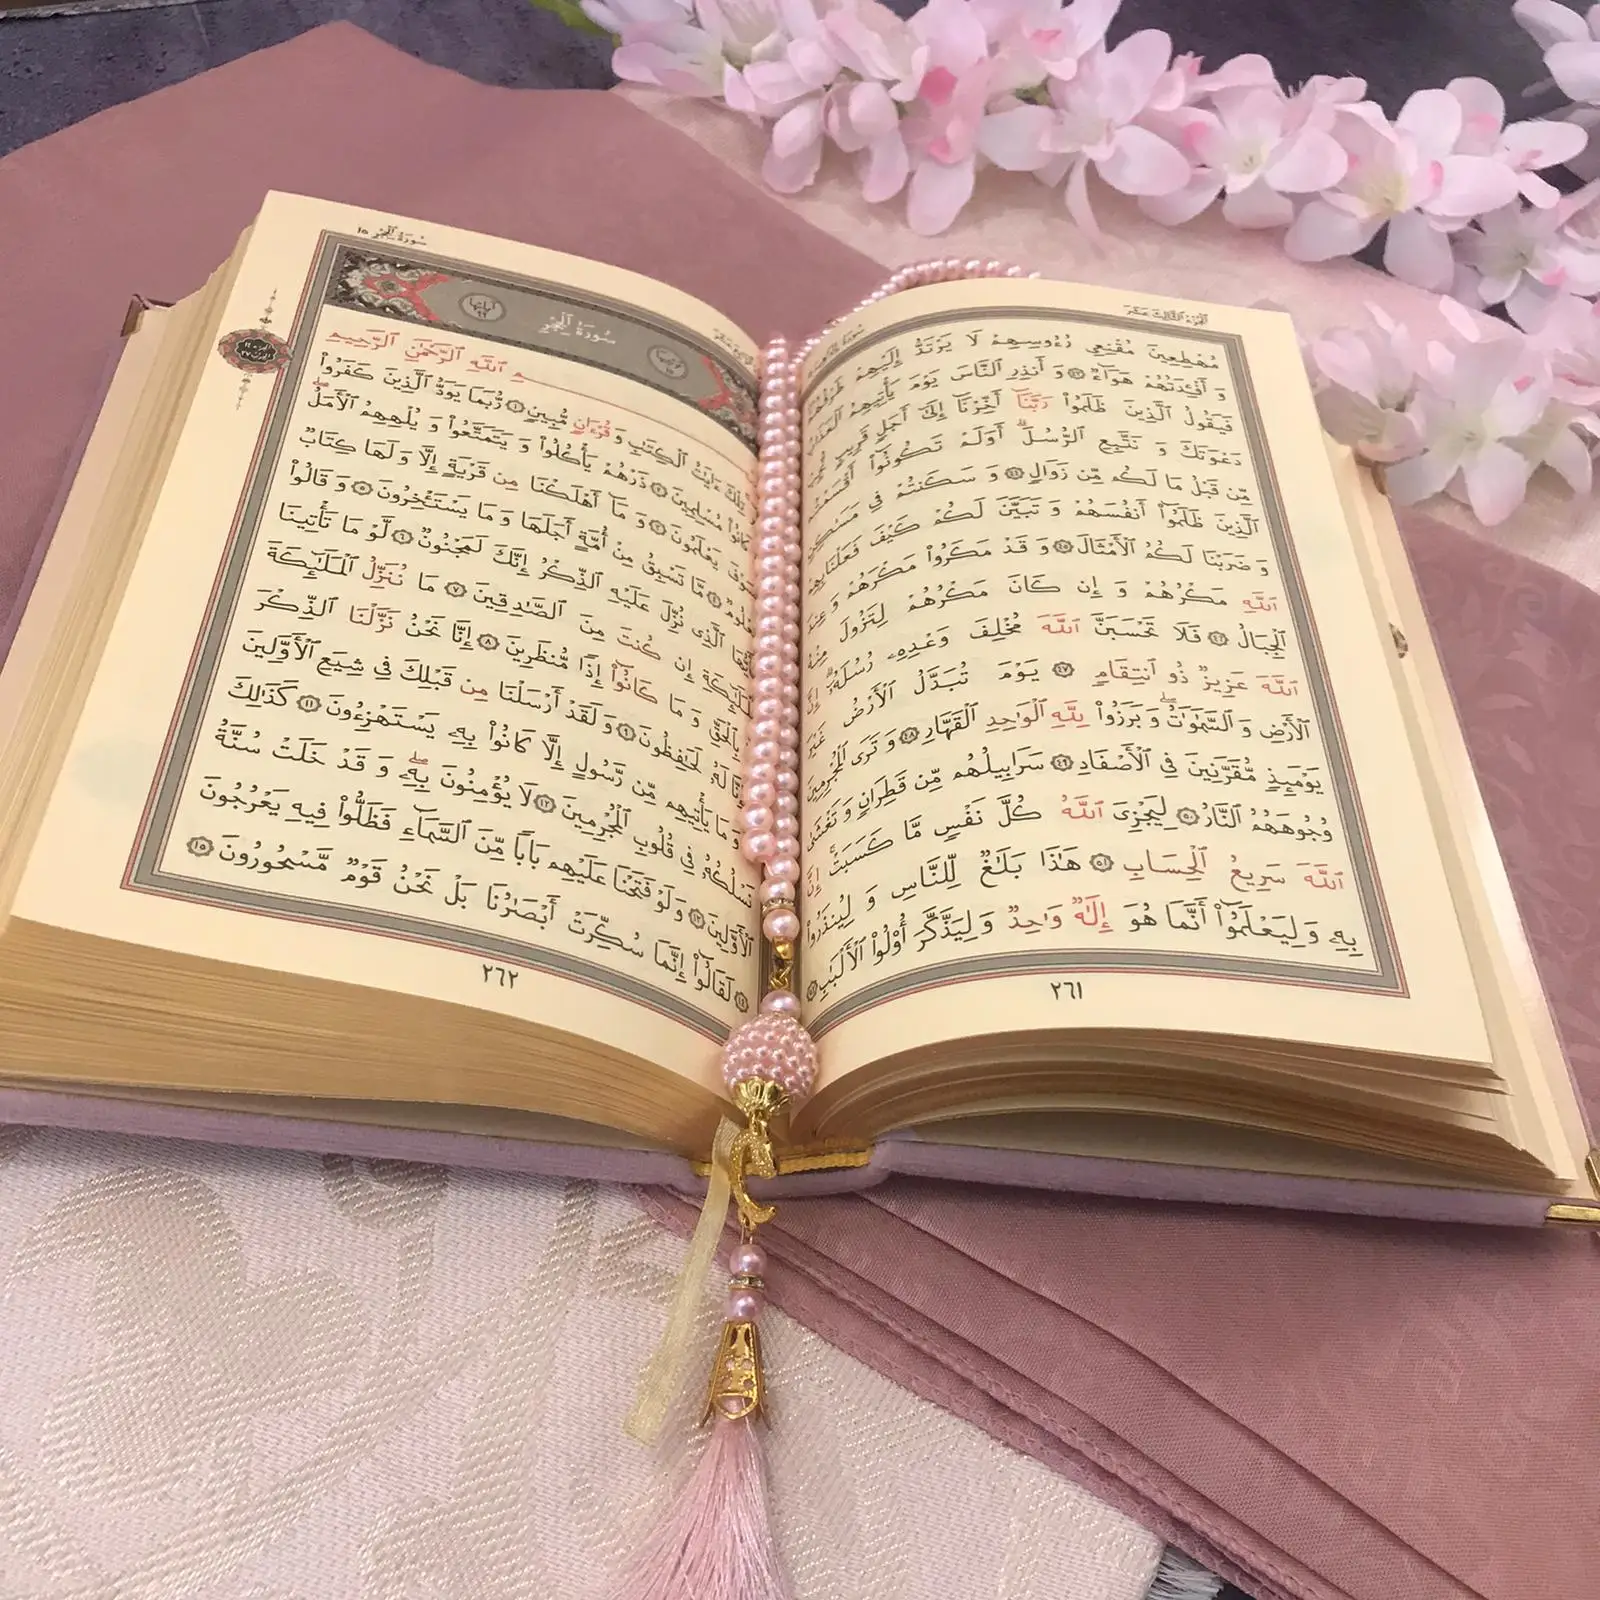 الجزء الثالث عشر
مُهْطِعِينَ مُقْنِعِي رُءُوسِهِمْ لَا يَرْتَدُّ إِلَيْهِمْ طَرْفُهُمْ
وَ أَفْئِدَتُهُمْ هَوَآءٌ ﴿٤٣﴾ وَ أَنذِرِ النَّاسَ يَوْمَ يَأْتِيهِمُ الْعَذَابُ
فَيَقُولُ الَّذِينَ ظَلَمُوا۟ رَبَّنَآ أَخِّرْنَآ إِلَىٰٓ أَجَلٍ قَرِيبٍ
دَعْوَتَكَ وَ نَتَّبِعِ الرُّسُلَ أَوَلَمْ تَكُونُوٓا۟ أَقْسَمْتُم
مِّن قَبْلُ مَا لَكُم مِّن زَوَالٍ ﴿٤٤﴾ وَ سَكَنتُمْ فِي مَسَٰكِنِ
الَّذِينَ ظَلَمُوٓا۟ أَنفُسَهُمْ وَ تَبَيَّنَ لَكُمْ كَيْفَ فَعَلْنَا بِهِمْ
وَ ضَرَبْنَا لَكُمُ الْأَمْثَالَ ﴿٤٥﴾ وَ قَدْ مَكَرُوا۟ مَكْرَهُمْ وَ عِندَ
اللَّهِ مَكْرُهُمْ وَ إِن كَانَ مَكْرُهُمْ لِتَزُولَ مِنْهُ
الْجِبَالُ ﴿٤٦﴾ فَلَا تَحْسَبَنَّ اللَّهَ مُخْلِفَ وَعْدِهِۦ رُسُلَهُۥٓ إِنَّ
اللَّهَ عَزِيزٌ ذُو انتِقَامٍ ﴿٤٧﴾ يَوْمَ تُبَدَّلُ الْأَرْضُ غَيْرَ
الْأَرْضِ وَ السَّمَٰوَٰتُ وَ بَرَزُوا۟ لِلَّهِ الْوَاحِدِ الْقَهَّارِ ﴿٤٨﴾ وَ تَرَى الْمُجْرِمِينَ
يَوْمَئِذٍ مُّقَرَّنِينَ فِي الْأَصْفَادِ ﴿٤٩﴾ سَرَابِيلُهُم مِّن قَطِرَانٍ وَ تَغْشَىٰ
وُجُوهَهُمُ النَّارُ ﴿٥٠﴾ لِيَجْزِيَ اللَّهُ كُلَّ نَفْسٍ مَّا كَسَبَتْ إِنَّ
اللَّهَ سَرِيعُ الْحِسَابِ ﴿٥١﴾ هَٰذَا بَلَٰغٌ لِّلنَّاسِ وَ لِيُنذَرُوا۟
بِهِۦ وَ لِيَعْلَمُوٓا۟ أَنَّمَا هُوَ إِلَٰهٌ وَاحِدٌ وَ لِيَذَّكَّرَ أُو۟لُوا۟ الْأَلْبَٰبِ ﴿٥٢﴾
٢٦١
سُورَةُ الْحِجْرِ ١٥
سُورَةُ الْحِجْرِ
اللَّهِ الرَّحْمَٰنِ الرَّحِيمِ
تِلْكَ ءَايَٰتُ الْكِتَٰبِ وَ قُرْءَانٍ مُّبِينٍ ﴿١﴾ رُّبَمَا يَوَدُّ الَّذِينَ كَفَرُوا۟
كَانُوا۟ مُسْلِمِينَ ﴿٢﴾ ذَرْهُمْ يَأْكُلُوا۟ وَ يَتَمَتَّعُوا۟ وَ يُلْهِهِمُ الْأَمَلُ
يَعْلَمُونَ ﴿٣﴾ وَ مَآ أَهْلَكْنَا مِن قَرْيَةٍ إِلَّا وَ لَهَا كِتَابٌ
مَّعْلُومٌ ﴿٤﴾ مَّا تَسْبِقُ مِنْ أُمَّةٍ أَجَلَهَا وَ مَا يَسْتَـْٔخِرُونَ ﴿٥﴾ وَ قَالُوا۟
الَّذِي نُزِّلَ عَلَيْهِ الذِّكْرُ إِنَّكَ لَمَجْنُونٌ ﴿٦﴾ لَّوْ مَا تَأْتِينَا
بِالْمَلَٰٓئِكَةِ إِن كُنتَ مِنَ الصَّٰدِقِينَ ﴿٧﴾ مَا نُنَزِّلُ الْمَلَٰٓئِكَةَ
بِالْحَقِّ وَ مَا كَانُوٓا۟ إِذًا مُّنظَرِينَ ﴿٨﴾ إِنَّا نَحْنُ نَزَّلْنَا الذِّكْرَ
لَهُۥ لَحَٰفِظُونَ ﴿٩﴾ وَ لَقَدْ أَرْسَلْنَا مِن قَبْلِكَ فِي شِيَعِ الْأَوَّلِينَ
وَ مَا يَأْتِيهِم مِّن رَّسُولٍ إِلَّا كَانُوا۟ بِهِۦ يَسْتَهْزِءُونَ ﴿١١﴾ كَذَٰلِكَ
نَسْلُكُهُۥ فِي قُلُوبِ الْمُجْرِمِينَ ﴿١٢﴾ لَا يُؤْمِنُونَ بِهِۦ وَ قَدْ خَلَتْ سُنَّةُ
الْأَوَّلِينَ ﴿١٣﴾ وَ لَوْ فَتَحْنَا عَلَيْهِم بَابًا مِّنَ السَّمَآءِ فَظَلُّوا۟ فِيهِ يَعْرُجُونَ
﴿١٤﴾ لَقَالُوٓا۟ إِنَّمَا سُكِّرَتْ أَبْصَٰرُنَا بَلْ نَحْنُ قَوْمٌ مَّسْحُورُونَ ﴿١٥﴾
٢٦٢